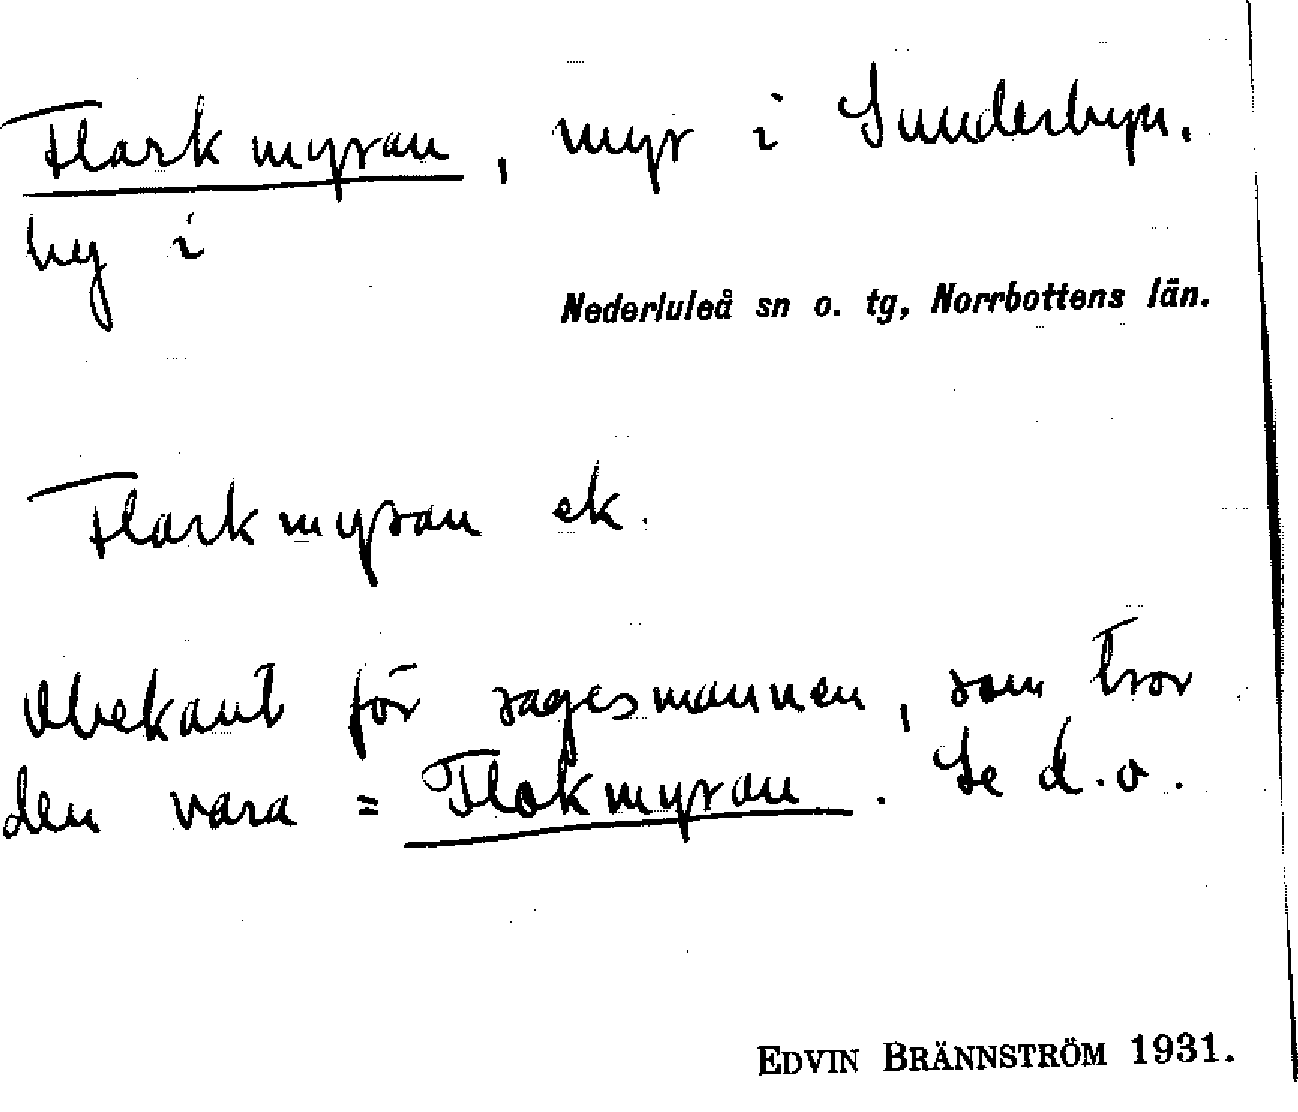 Flarkmyran, myr i Sunderbyn.
by i
Nederluleå sn o. tg, Norrbottens län.
Flarkmyran ek.
Obekant för sagesmannen, som tror
den vara = Flakmyran. Se d.o.
EDVIN BRÄNNSTRÖM 1931.